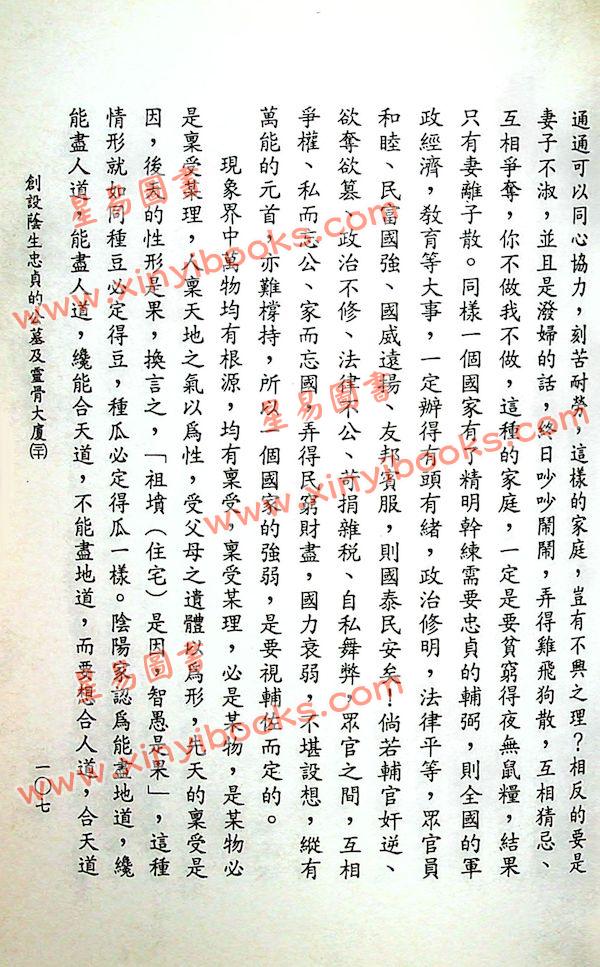 通通可以同心協力，刻苦耐勞，這樣的家庭，豈有不興之理？相反的要是
妻子不淑，並且是潑婦的話，終日吵吵鬧鬧，弄得雞飛狗散，互相猜忌、
互相爭奪，你不做我不做，這種的家庭，一定是要貧窮得夜無鼠糧，結果
只有妻離子散。同樣一個國家有了精明幹練需要忠貞的輔弼，則全國的軍
政經濟，教育等大事，一定辦得有頭有緒，政治修明，法律平等，眾官員
和睦、民富國強、國威遠揚、友邦賓服，則國泰民安矣！倘若輔官奸逆、
欲奪欲篡、政治不修、法律不公、苛捐雜税、自私舞弊，眾官之間，互相
爭權、私而忘公、家而忘國，弄得民窮財盡，國力衰弱，不堪設想，縱有
萬能的元首，亦難撐持，所以一個國家的強弱，是要視輔佐而定的。
現象界中萬物均有根源，均有稟受，稟受某理，必是某物，是某物必
是稟受某理，人稟天地之氣以爲性，受父母之遺體以爲形，先天的稟受是
因，後天的性形是果，換言之，「祖墳（住宅）是因，智愚是果」，這種
情形就如同種豆必定得豆，種瓜必定得瓜一樣。陰陽家認爲能盡地道，纔
能盡人道，能盡人道，纔能合天道，不能盡地道，而要想合人道，合天道
創設蔭生忠貞的公墓及靈骨大廈
一〇七
星易圖書
www.xinyibooks.com
星易圖書
www.xinyibooks.com
星易圖書
www.xinyibooks.com